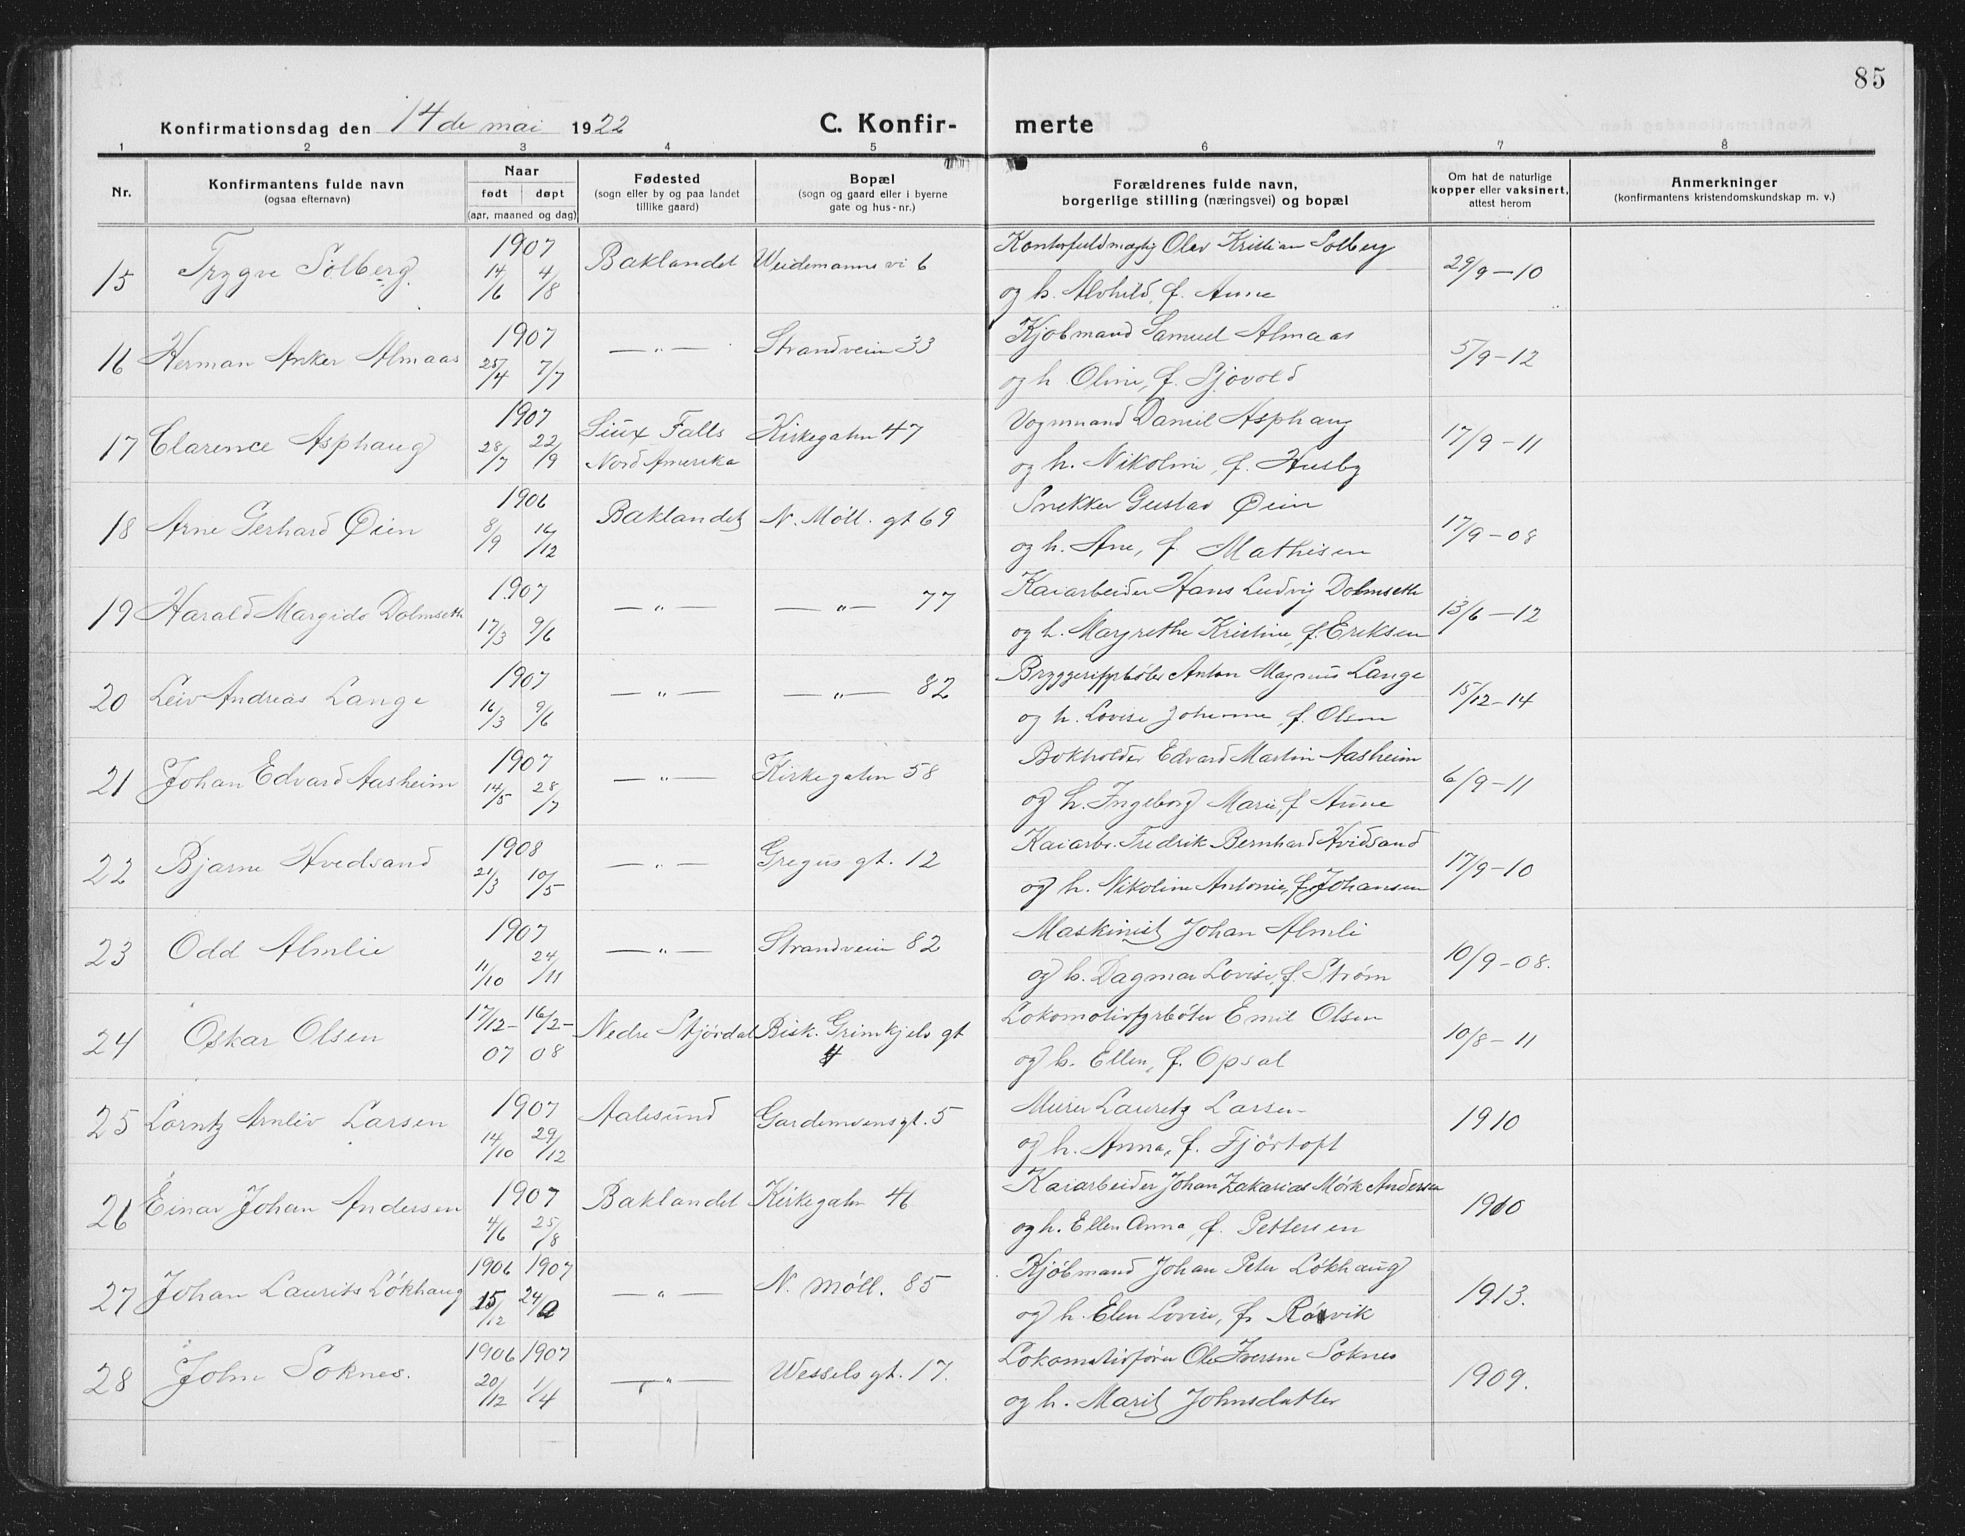 85
Konfirmationsdag den 14de mai 1922 C. Konfir- merte
1 2 3 4 5 6 7 8
Nr. Konfirmantens fulde navn (ogsaa efternavn) Naar født døpt (aar, maaned og dag) Fødested (sogn eller by og paa landet tillike gaard) Bopæl (sogn og gaard eller i byerne gate og hus-nr.) Forældrenes fulde navn, borgerlige stilling (næringsvei) og bopæl Om hat de naturlige kopper eller vaksinert, attest herom Anmerkninger (konfirmantens kristendomskundskap m. v.)
15 Trygve Solberg. 1907 14/6 4/8 Baklandet Weidemanns vi 6 Kontorfuldmægtig Olav Kristian Solberg 29/9-10
og h. Alvhild, f. Aune
16 Herman Anker Almaas 1907 25/4 7/7 —"— Strandveien 33 Kjøbmand Samuel Almaas 5/9-12
og h. Oline, f. Sjøvold
17 Clarence Asphaug 1907 28/7 22/9 Siux Falls Nord Amerika Kirkegatin 47 Vognmand Daniel Asphaug 17/9-11
og h. Nikoline, f. Husby
18 Arne Gerhard Øien 1906 8/9 16/12 Baklandet N. Møll. gt 69 Snekker Gustav Øien 17/9-08
og h. Ane, f. Mathisen
19 Harald Margido Dolmseth 1907 17/3 9/6 —"— —"— 77 Kaiarbeider Hans Ludvig Dolmseth 13/6-12
og h. Margrethe Kristine, f. Eriksen
20 Leiv Andreas Lange 1907 16/3 9/6 —"— —"— 82 Bryggerifyrbøter Anton Magnus Lange 15/12-14
og h. Lovise Johanne, f. Olsen
21 Johan Edvard Aasheim 1907 14/5 28/7 —"— Kirkegatin 58 Bokholder Edvard Martin Aasheim 6/9-11
og h. Ingeborg Marie, f. Aune
22 Bjarne Hvidsand 1908 21/3 10/5 —"— Gregus gt. 12 Kaiarb. Fredrik Bernhard Hvidsand 17/9-10
og h. Nikoline Antonie, f. Johansen
23 Odd Almlie 1907 11/10 24/11 —"— Strandveien 82 Maskinist Johan Almli 10/9-08.
og h. Dagmar Lovise, f. Strøm
24 Oskar Olsen 17/12-07 16/2-08 Nedre Stjørdal Bisk. Grimkjels gt 4 Lokomotivfyrbøter Emil Olsen 10/8-11
og h. Ellen, f. Opsal
25 Lorntz Arnliv Larsen 1907 14/10 29/12 Aalesund Gardemoensgt. 5 Murer Lauretz Larsen 1910
og h. Anna, f. Fjørtoft
26 Einar Johan Andersen 1907 4/6 25/8 Baklandet Kirkegatin 46 Kaiarbeider Johan Zakarias Mørk Andersen 1910
og h. Ellen Anna, f. Pettersen
27 Johan Laurits Løkhaug 1906 1907 15/12 24/ —"— N. Møll. 85 Kjøbmand Johan Peter Løkhaug 1913.
og h. Elen Lovise, f. Rørvik
28 John Soknes. 1906 1907 20/12 1/4 —"— Wessels gt. 17. Lokomotivfører Ole Iversen Soknes 1909.
og h. Marit Johnsdatter